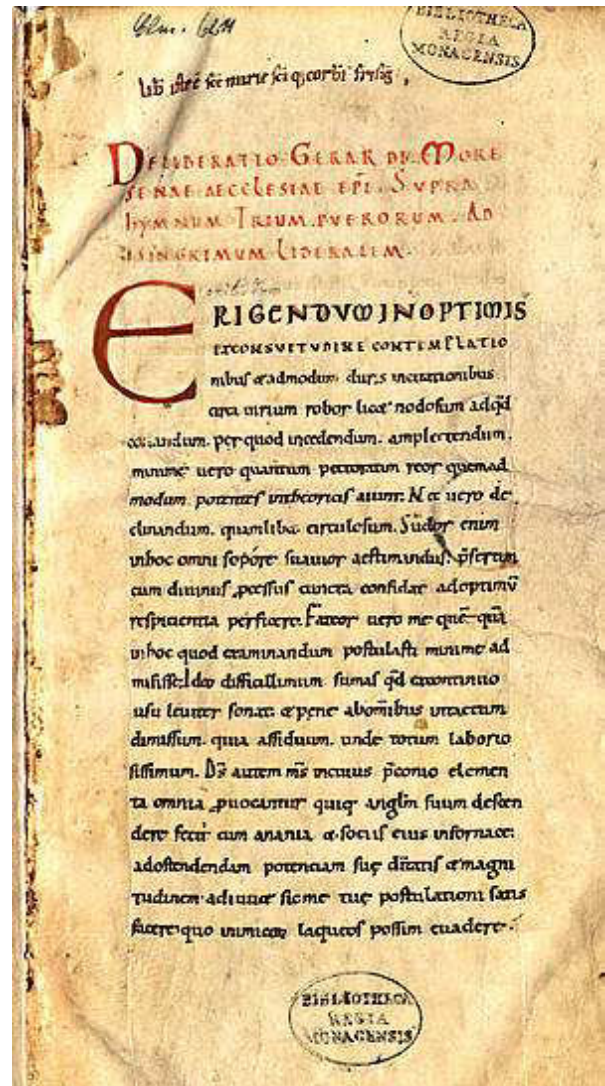 Clm. 6211
BIBLIOTHECA
REGIA
MONACENSIS
Lib iste sce marie sci q; corbi frisig
DELIBERATIO GERARDI MORE
SENAE AECCLESIAE EPI. SUPRA
HYMNUM TRIUM PUERORUM. AD
ISINGRIMUM LIBERALEM.
ERIGENDUM IN OPTIMIS
ET CONSUETUDINE CONTEMPLATIO
nibus & admodum duris incitationibus
circa uirium robor lic& nodosum ad qd
andum. per quod incedendum. amplectendum.
minime uero quantum pectoratim reor quemad
modum potentes in theoricis aiunt. Nec uero de
clinandum. quamlib& circulosum. Sudor enim
in hoc omni sopore suauior aestimandus. psertim
cum diuinus pcessus cuncta confidat ad optimu
respicientia perficere. Fateor uero me que qua
in hoc quod examinandum postulasti minime ad
misisse. Ideo difficillimum sumas qd ex continuo
usu leuiter sonat. & pene ab omibus intactum
dimissum. quia assiduum. unde totum laborio
sissimum. Ds autem ms in cuius pconio elemen
ta omnia puocantur quiq; anglm suum descen
dere fecit cum anania & sociis eius in fornace.
ad ostendendam potenciam suę ditatis & magni
tudinem adiuu& sic me tuę postulationi satis
facere quo inimicor laqueos possim euadere.
BIBLIOTHECA
REGIA
MONACENSIS